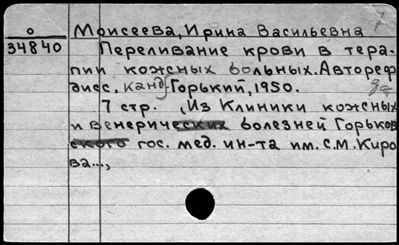 о
34840
Моисеева, Ирина Васильевна
Переливание крови в тера-
пии кожных больных. Автореф
дисс. канд. Горький, 1950.
7 стр. (Из Клиники кожных
и венерических болезней Горьков
ского гос. мед. ин-та им. С.М. Киро
ва...,